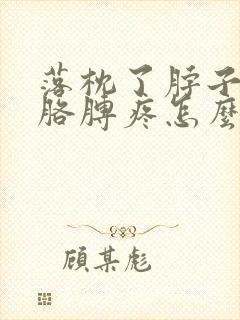 落枕了脖子
胳膊疼怎麼
顾某彪